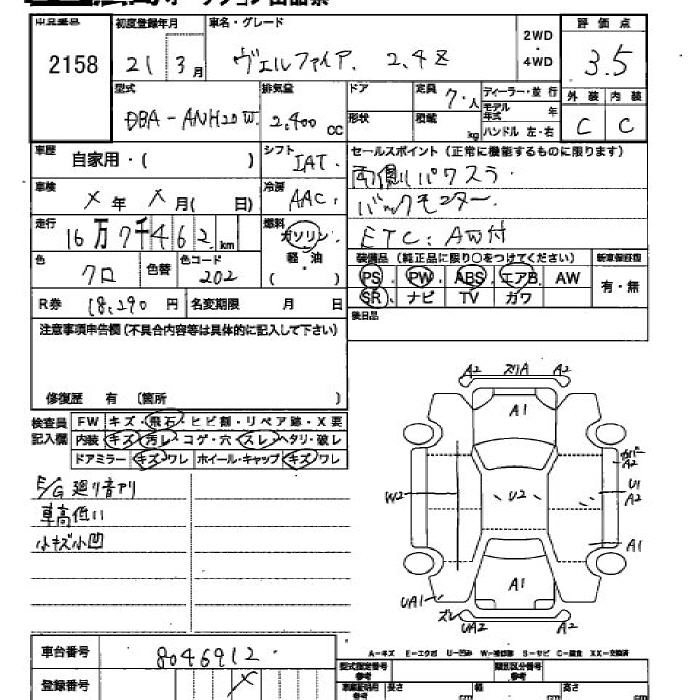 オークション出品票
初度登録年月
車名・グレード
2WD
・
4WD
評価点
2158
21
3月
ヴェルファイア.
2.4Z
3.5
型式
排気量
ドア
定員
7.人
ディーラー・並行
外装
内装
DBA-ANH20W.
2,400cc
形状
積載
kg
モデル年式
年
ハンドル 左・右
C
C
車歴
自家用・( )
シフト
IAT.
セールスポイント(正常に機能するものに限ります)
車検
X年X月( 日)
冷房
AAC.
両側パワスラ
バックモニター.
走行
16万7千462km
燃料
ガソリン.
軽・油
( )
ETC.AW付
色
クロ
色替
色コード
202
装備品(純正品に限り○をつけてください)
新車保証書
PS
PW
ABS
エアB
AW
有・無
SR
ナビ
TV
ガワ
R券
18,290円
名変期限
月
日
後日品
注意事項申告欄(不具合内容等は具体的に記入して下さい)
修復歴 有 〔箇所 〕
検査員
記入欄
FW
キズ・飛石・ヒビ割・リペア跡・X要
内装
キズ・汚レ・コゲ・穴・スレ・ヘタリ・破レ
ドアミラー
キズ・ワレ
ホイール・キャップ
キズ・ワレ
E/G廻り音アリ
車高低い
小キズ小凹
A2
スリA
A2
A1
カバーA2
W2
U2
U1
A2
A1
A1
UA1
ズレ
UA2
A2
A-キズ E-エクボ U-凹み W-補修跡 S-サビ C-腐食 XX-交換済
車台番号
8046912
登録番号
X
型式指定番号
参考
類別区分番号
参考
車庫証明用
参考
長さ
cm
幅
cm
高さ
cm